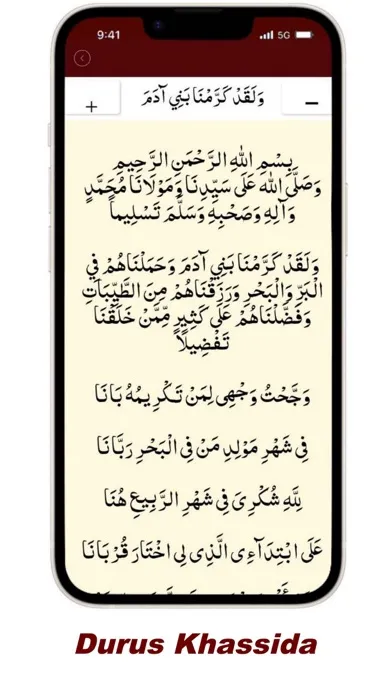 9:41
5G
وَلَقَدْ كَرَّمْنَا بَنِي آدَمَ
+
−
بِسْمِ اللهِ الرَّحْمَنِ الرَّحِيمِ
وَصَلَّى اللهُ عَلَى سَيِّدِنَا وَمَوْلَانَا مُحَمَّدٍ
وَآلِهِ وَصَحْبِهِ وَسَلَّمَ تَسْلِيماً
وَلَقَدْ كَرَّمْنَا بَنِي آدَمَ وَحَمَلْنَاهُمْ فِي
الْبَرِّ وَالْبَحْرِ وَرَزَقْنَاهُمْ مِنَ الطَّيِّبَاتِ
وَفَضَّلْنَاهُمْ عَلَى كَثِيرٍ مِّمَّنْ خَلَقْنَا
تَفْضِيلاً
وَجَّهْتُ وَجْهِى لِمَنْ تَكْرِيمُهُ بَانَا
فِى شَهْرِ مَوْلِدِ مَنْ فِى الْبَحْرِ رَبَّانَا
لِلَّهِ شُكْرِىَ فِى شَهْرِ الرَّبِيعِ هُنَا
عَلَى ابْتِدَآءِى الَّذِى لِى اخْتَارَ قُرْبَانَا
Durus Khassida